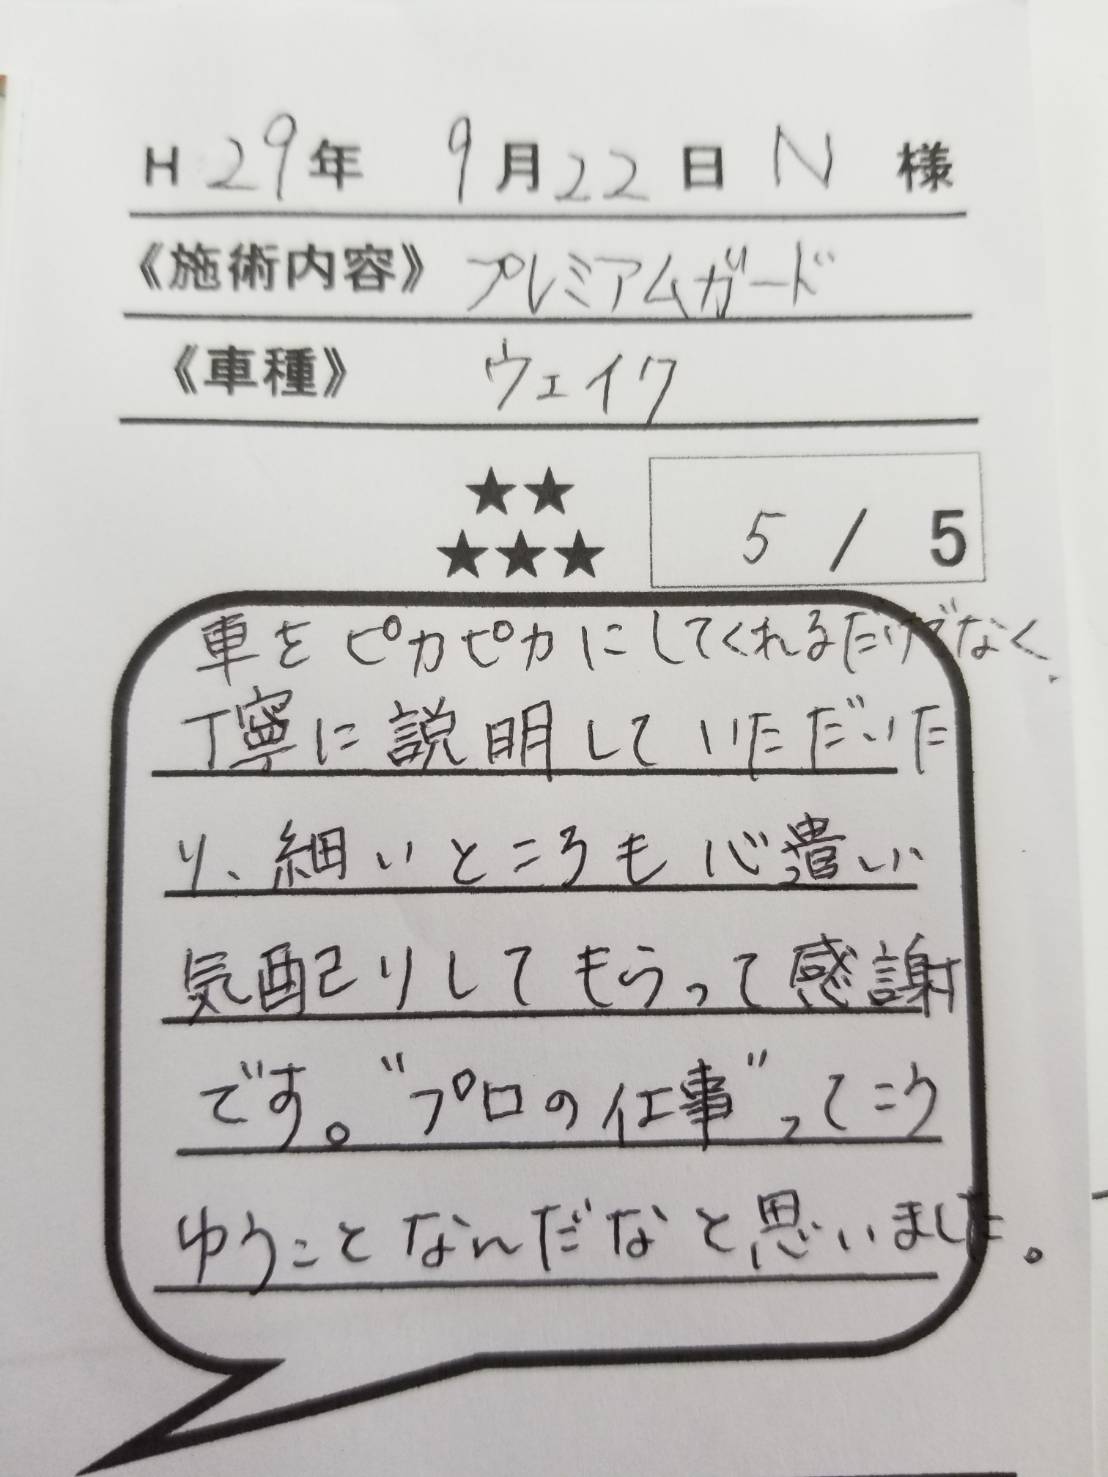 H 29年 9月22日 N 様
《施術内容》 プレミアムガード
《車種》 ウェイク
★★
★★★ 5 / 5
車をピカピカにしてくれるだけでなく、
丁寧に説明していただいた
り、細いところも心遣い
気配りしてもらって感謝
です。“プロの仕事”ってこう
ゆうことなんだなと思いました。